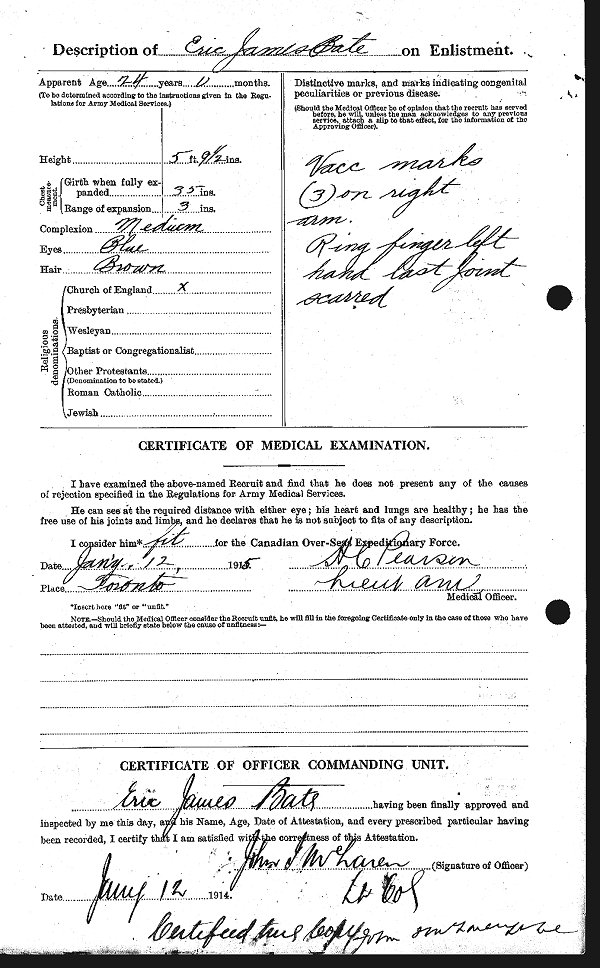 Description of Eric James Bate on Enlistment.
Apparent Age 24 years 0 months.
(To be determined according to the instructions given in the Regu-
lations for Army Medical Services.)
Height 5 ft. 9 1/2 ins.
Chest measure-ment.
Girth when fully ex-
panded 35 ins.
Range of expansion 3 ins.
Complexion Medium
Eyes Blue
Hair Brown
Religious denominations.
Church of England x
Presbyterian
Wesleyan
Baptist or Congregationalist
Other Protestants
(Denomination to be stated.)
Roman Catholic
Jewish
Distinctive marks, and marks indicating congenital
peculiarities or previous disease.
(Should the Medical Officer be of opinion that the recruit has served
before, he will, unless the man acknowledges to any previous
service, attach a slip to that effect, for the information of the
Approving Officer).
Vacc marks
(3) on right
arm.
Ring finger left
hand last joint
scarred
CERTIFICATE OF MEDICAL EXAMINATION.
I have examined the above-named Recruit and find that he does not present any of the causes
of rejection specified in the Regulations for Army Medical Services.
He can see at the required distance with either eye; his heart and lungs are healthy; he has the
free use of his joints and limbs, and he declares that he is not subject to fits of any description.
I consider him* fit for the Canadian Over-Seas Expeditionary Force.
Date Jan'y. 12, 1915
Place Toronto
H C Pearson
Lieut
Medical Officer.
*Insert here "fit" or "unfit."
NOTE.—Should the Medical Officer consider the Recruit unfit, he will fill in the foregoing Certificate only in the case of those who have
been attested, and will briefly state below the cause of unfitness:—
CERTIFICATE OF OFFICER COMMANDING UNIT.
Eric James Bate having been finally approved and
inspected by me this day, and his Name, Age, Date of Attestation, and every prescribed particular having
been recorded, I certify that I am satisfied with the correctness of this Attestation.
John I McLaren (Signature of Officer)
Lt Col
Date Jany 12 1914.
Certified true Copy